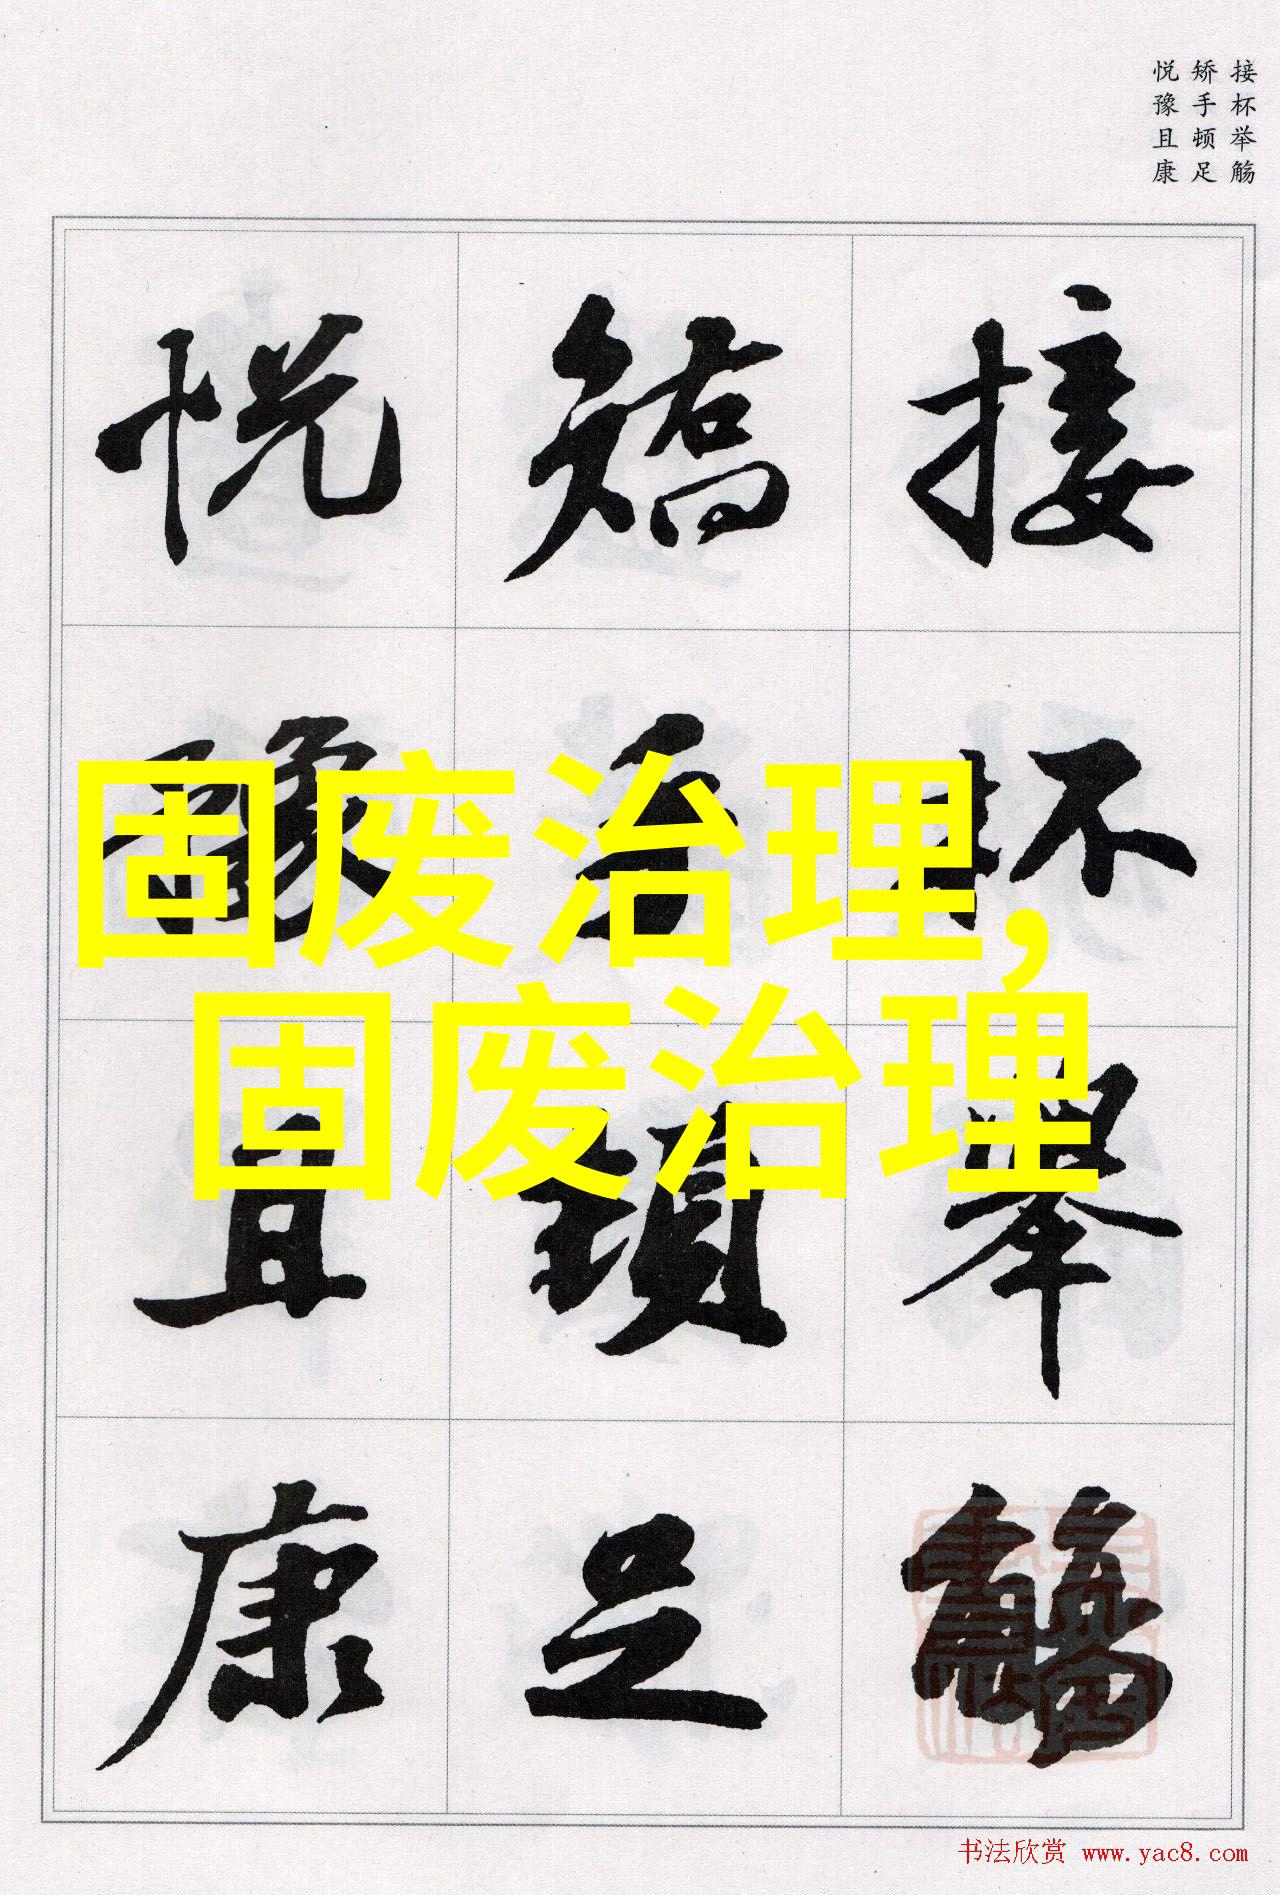 接杯举觞
矫手顿足
悦豫且康
接杯舉觴
矯手頓足
悦豫且康
固废治理,
固废治理
书法欣赏 www.yac8.com